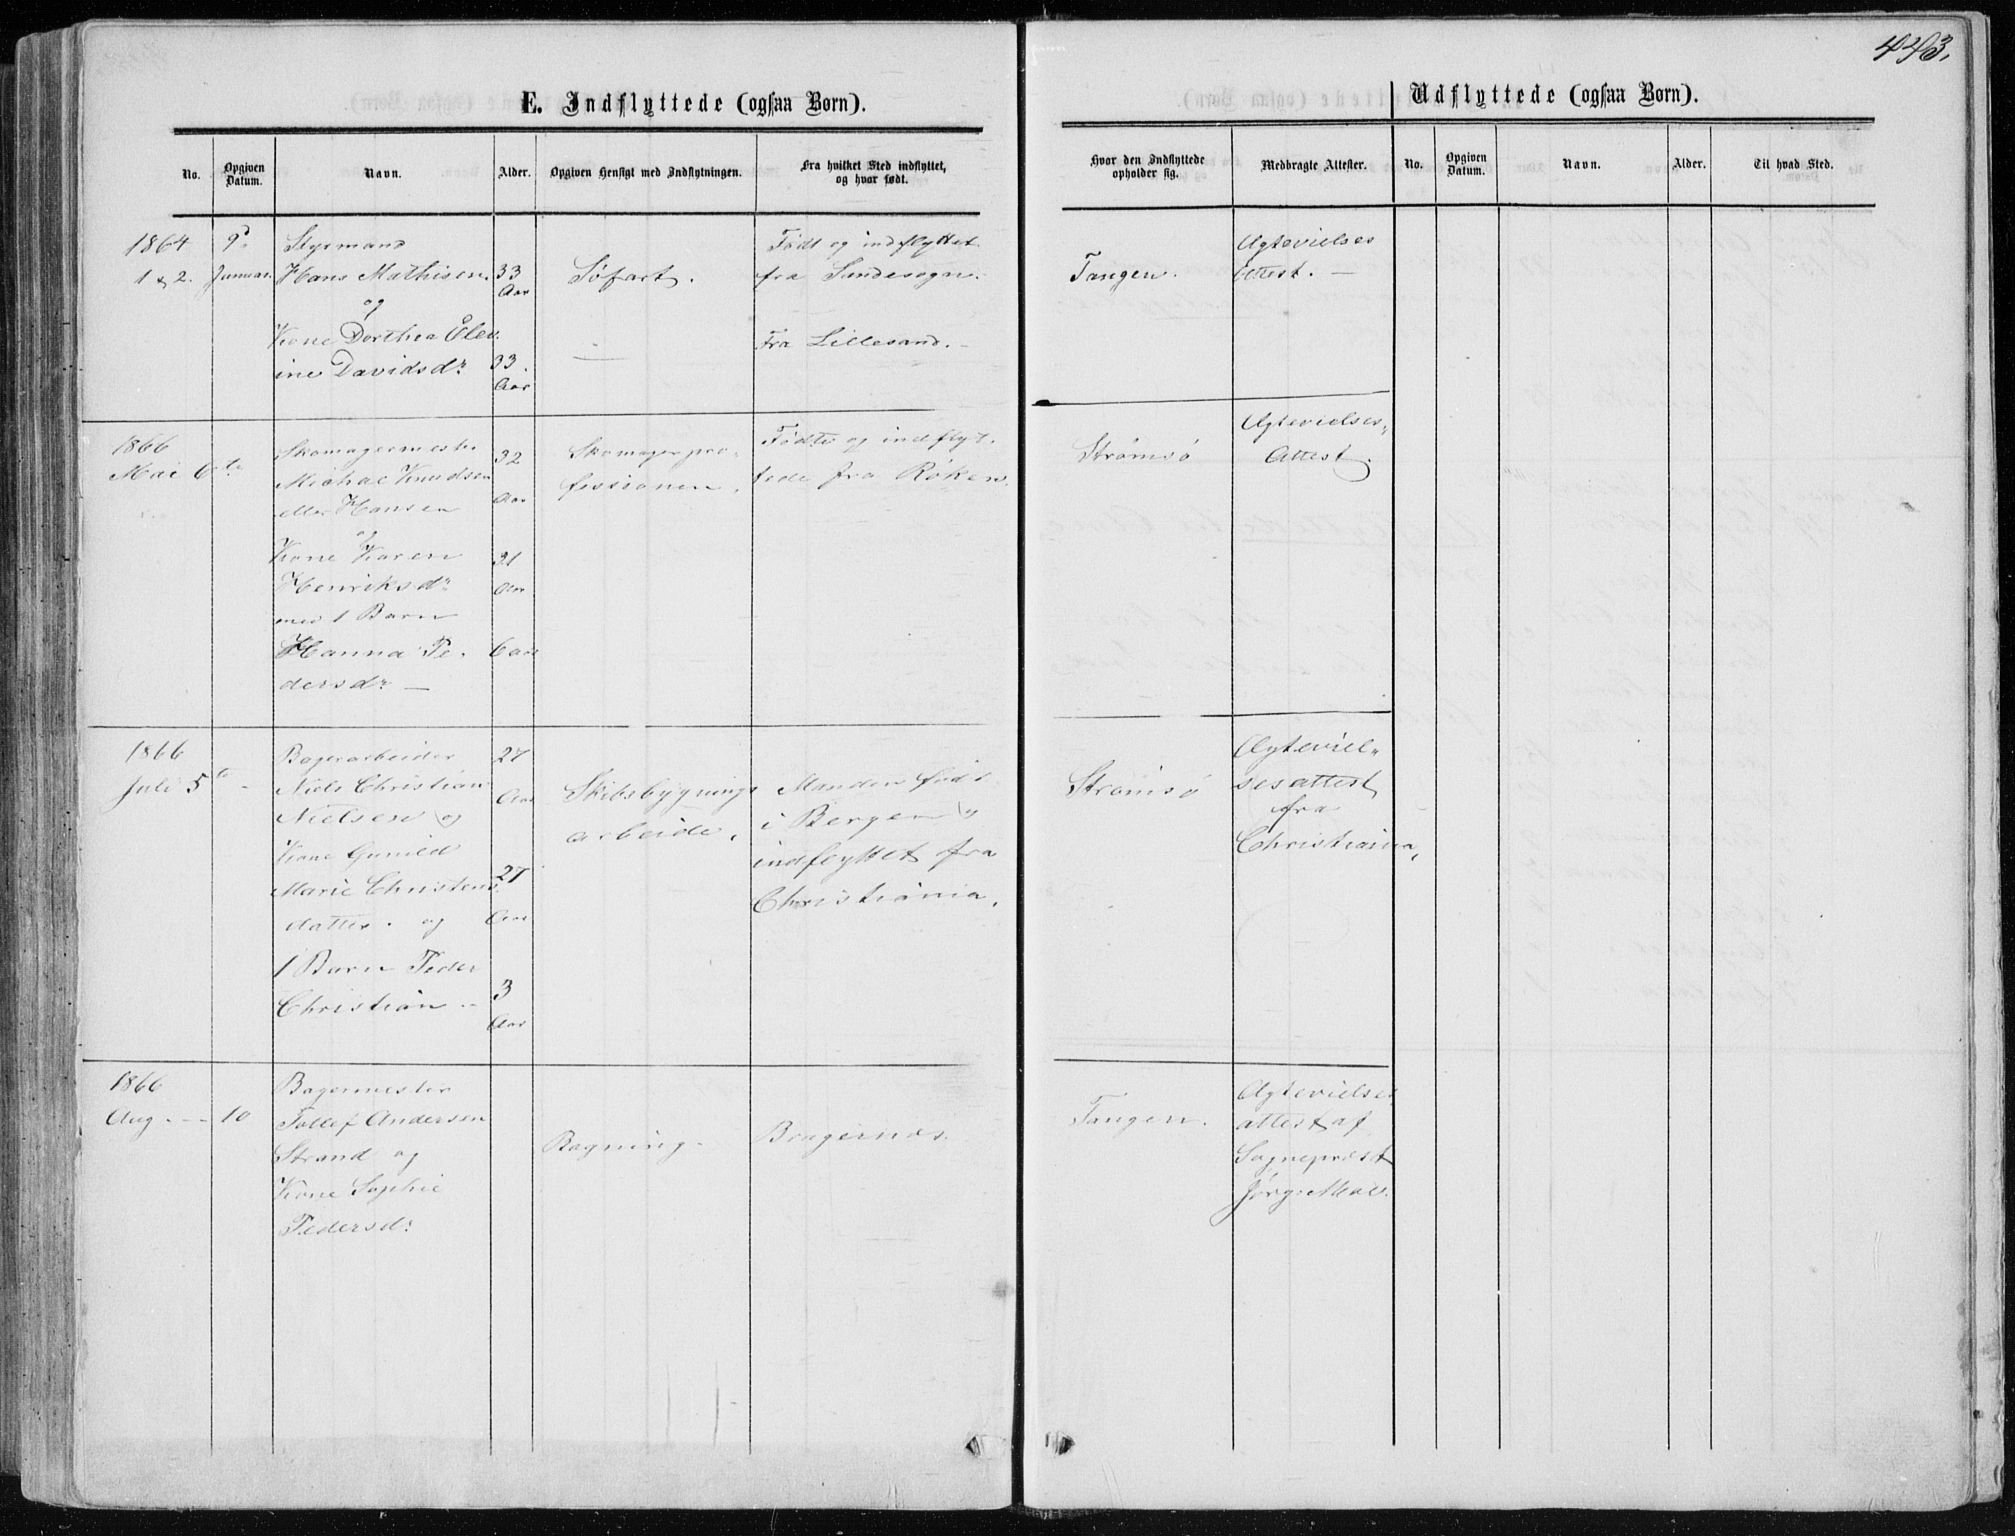 443.
E. Indflyttede (ogsaa Børn).
Udflyttede (ogsaa Børn).
No.
Opgiven Datum.
Navn.
Alder.
Opgiven Hensigt med Indflytningen.
Fra hvilket Sted indflyttet, og hvor født.
Hvor den Indflyttede opholder sig.
Medbragte Attester.
No.
Opgiven Datum.
Navn.
Alder.
Til hvad Sted.
1864
1 & 2.
9de
Januar.
Styrmand
Hans Mathisen
og
Kone Dorthea Elev
ine Davidsdr
33
Aar
33.
Aar
Søfart.
—
Født og indflyttet
fra Sandesogn.
Fra Lillesand.
Tangen.
Ægtevielses
Attest. —
1866
Mai 6te
Skomagermester
Michael Knudsen
eller Hansen
og
Kone Karen
Henriksdr
med 1 Barn
Hanna Pe-
dersdr —
32
Aar
31
Aar
6 Aar
Skomagerpro-
fessionen.
Fødte og indflyt-
tede fra Røken.
Strømsø
Ægtevielses-
Attest.
1866
Juli 5te -
Bagerarbeider
Niels Christian
Nielsen og
Kone Gunild
Marie Christens
datter. og
1 Barn Peder
Christian -
27
Aar
27
Aar
3
Aar
Skibsbygnings
arbeide.
Manden født
i Bergen og
indflyttet fra
Christiania.
Strømsø
Ægteviel-
sesattest
fra
Christiania.
1866
Aug. - - 10
Bagermester
Tollef Andersen
Strand og
Kone Sophie
Pedersdr
Bagning.
Bragernæs.
Tangen.
Ægtevielses
attest af
Sognepræst
Jørg: Moe.